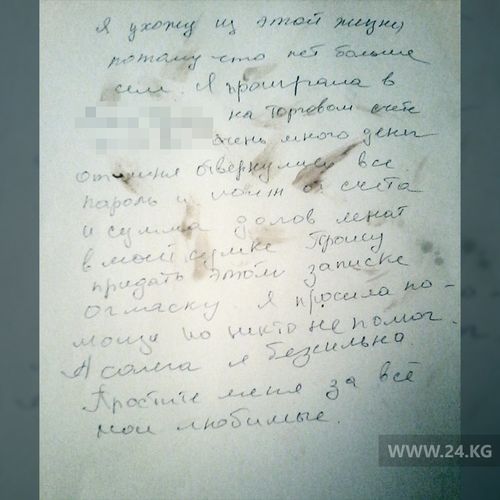 Я ухожу из этой жизни
потому что нет больше
сил. Я проиграла в
на торговом счёте
очень много денег
от меня отвернулись все.
пароль и логин от счёта
и сумма долгов лежат
в моей сумке Прошу
придать этой записке
огласку. Я просила по-
мощи но никто не помог.
А сама я безсильна.
Простите меня за всё
мои любимые.
WWW.24.KG